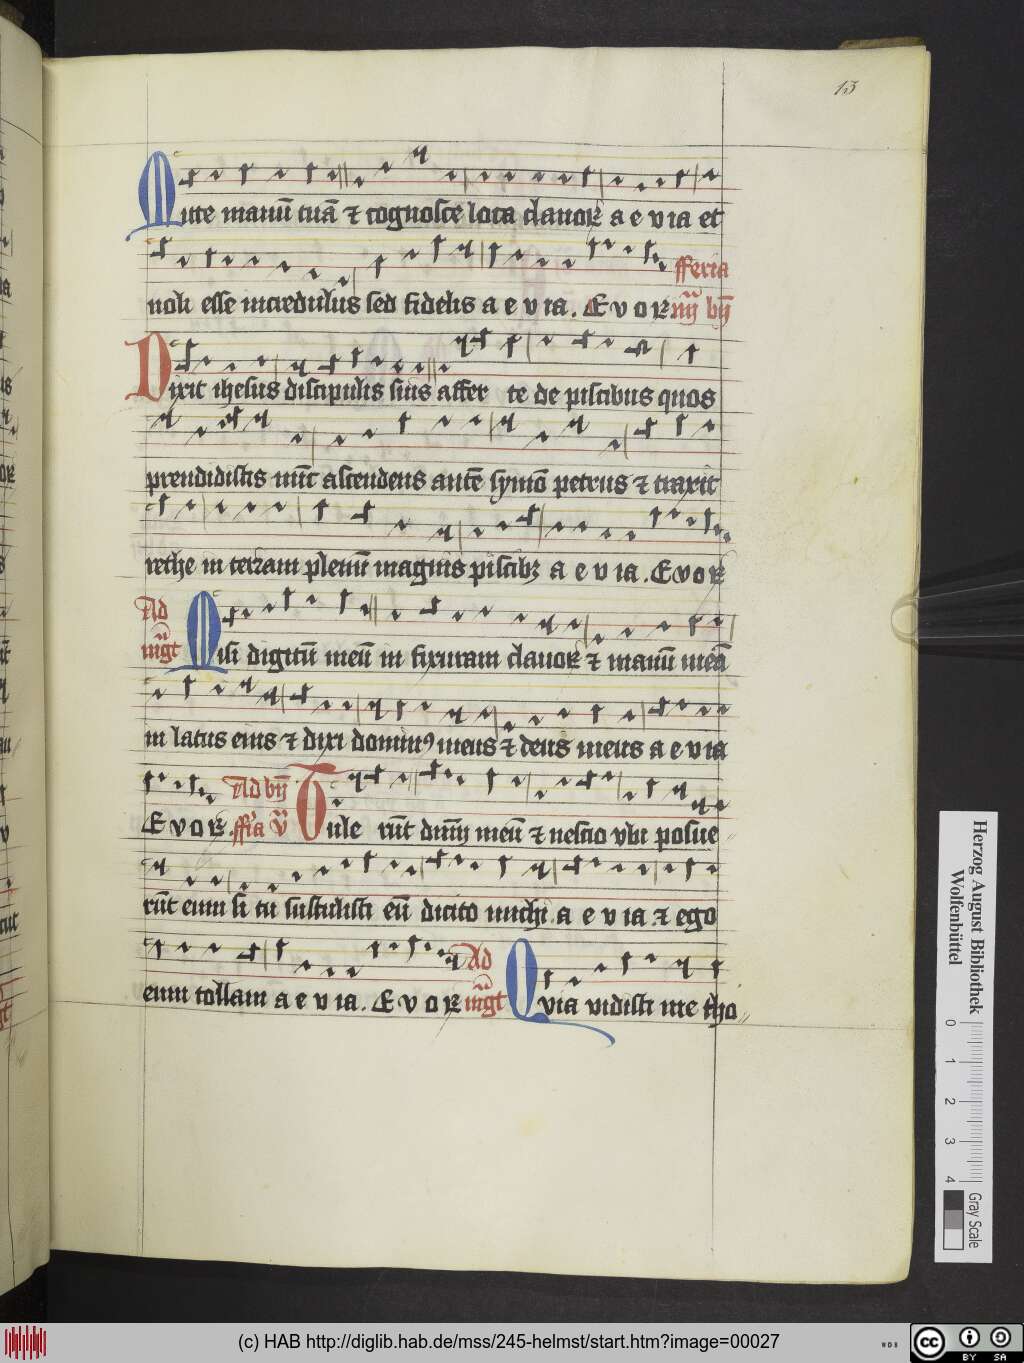 13
Mitte manū tuā ⁊ cognosce loca clauoꝝ a e v ia et
fferia
noli esse incredulus sed fidelis a e v ia. E v o ꝝ iiij bn̄
Dixit ihesus discipulis suis affer te de piscibus quos
prendidistis nūc ascendens autē symō petrus ⁊ traxit
rethe in terram plenū magnis piscibꝫ a e v ia. E v o ꝝ
Ad
mg̃t Misi digitū meū in fixuram clauoꝝ ⁊ manū meā
in latus eius ⁊ dixi dominꝰ meus ⁊ deus meus a e v ia
Ad bn̄
E v o ꝝ. ffia v Tule rūt dn̄m meū ⁊ nescio vbi posue
rūt eum si tu sustulisti eū dicito michi a e v ia ⁊ ego
Ad
eum tollam a e v ia. E v o ꝝ mg̃t Qvia vidisti me tho
Herzog August Bibliothek
Wolfenbüttel
0 1 2 3 4
Gray Scale
(c) HAB http://diglib.hab.de/mss/245-helmst/start.htm?image=00027
WDB
cc BY SA